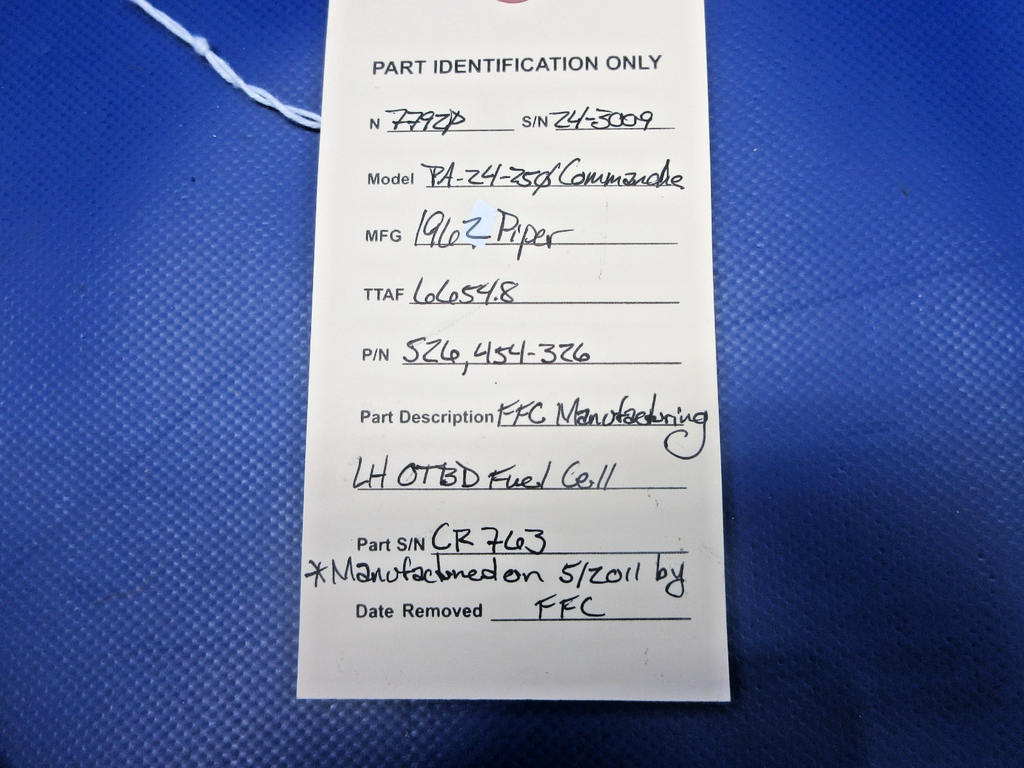 PART IDENTIFICATION ONLY
N 7792P S/N 24-3009
Model PA-24-250 Commanche
MFG 1962 Piper
TTAF 6654.8
P/N 526,454-326
Part Description FFC Manufacturing
LH OTBD Fuel Cell
Part S/N CR763
*Manufactured on 5/2011 by
Date Removed FFC